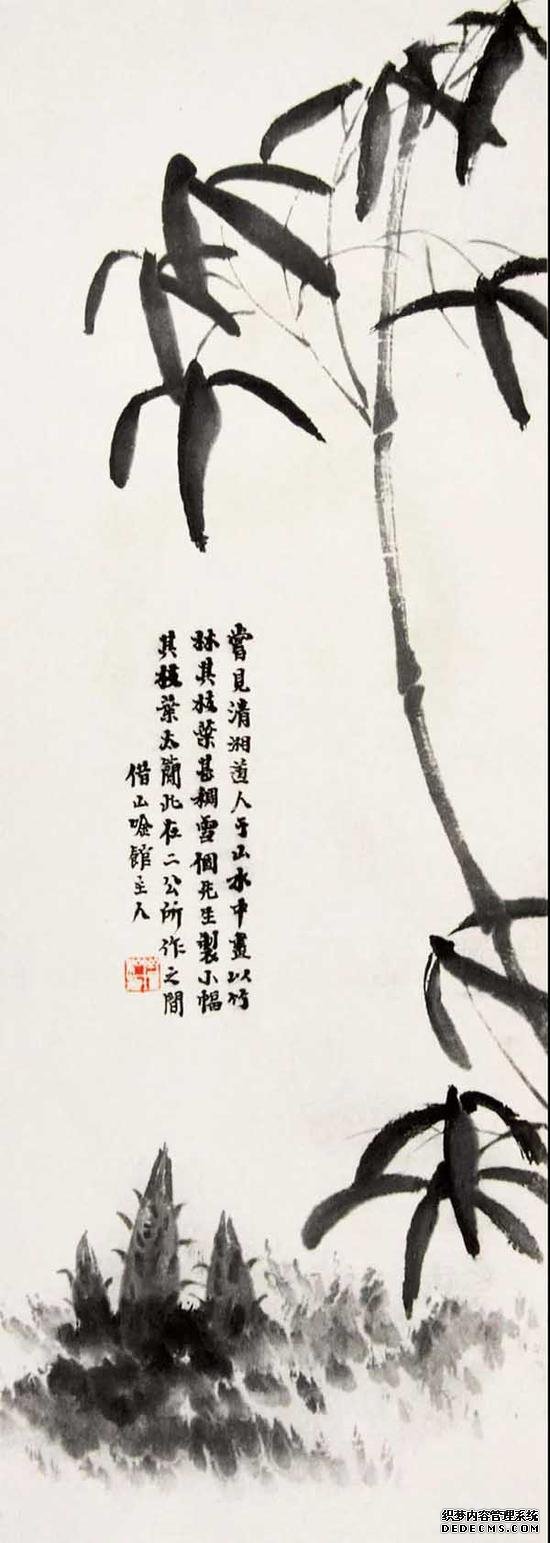 嘗見清湘道人于山水中畫以竹
林其枝葉甚稠雪個先生製小幅
其枝葉太簡此在二公所作之間
借山唫館主人
织梦内容管理系统
DEDECMS.COM